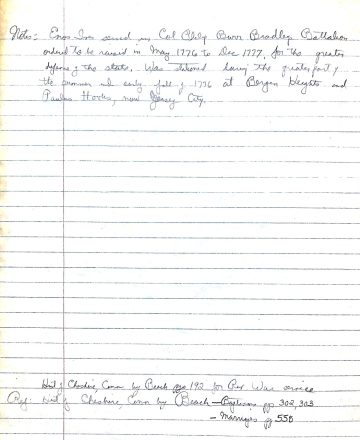 Notes: Enos Ives served in Col Philip Burr Bradley Battalion
ordered to be raised in May 1776 to Dec 1777, for the greater
defense of the state. Was stationed during the greater part of
the summer and early fall of 1776 at Bergen Heights and
Paulus Hook, now Jersey City.
Hist of Cheshire, Conn by Beach pg 192 for Rev War service
Ref: Hist of Cheshire, Conn by Beach — Baptisms pp 302, 303
— Marriages pg 550